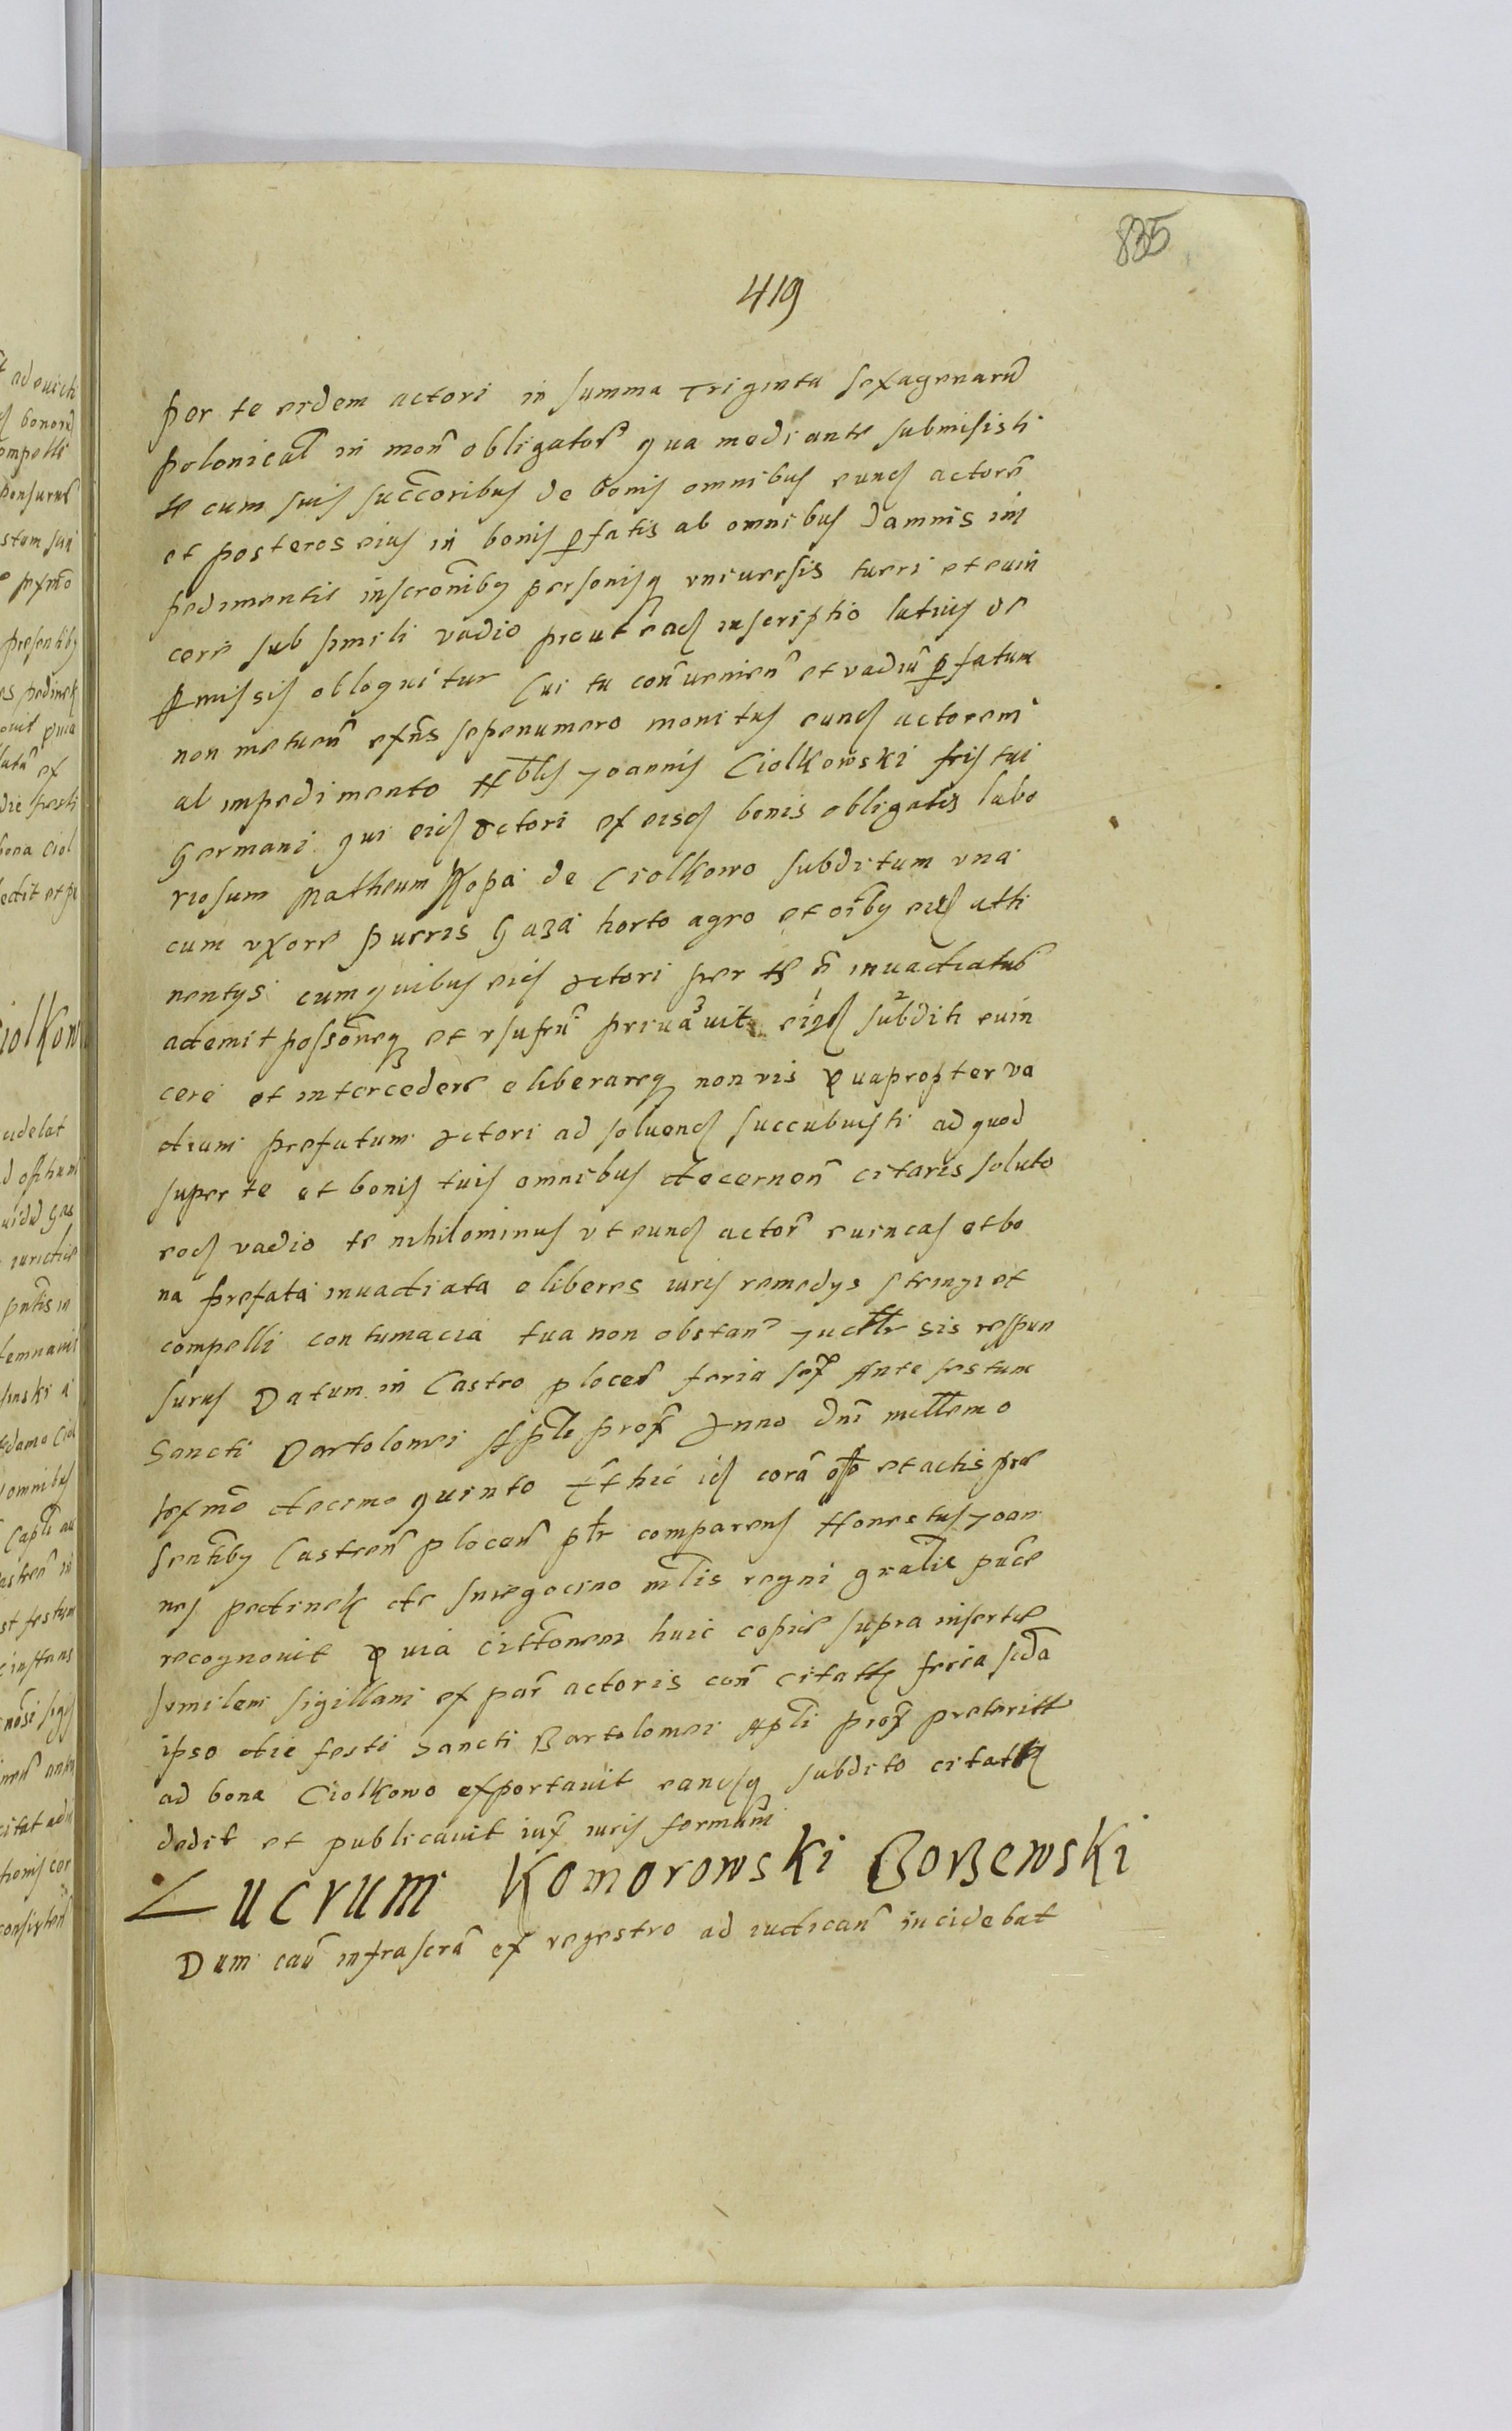 835
419
per te eidem actori in summa Triginta sexagenarũ
polonical in moñ obligator̃ qua mediante submisisti
te cum suis succ̃oribus de bonis omnibus eund actorẽ
et posteros eius in bonis p̃fatis ab omnibus damnis im
pedimentis inscrõnibq personisq vniuersis tueri et euin
cere sub simili vadio prout ead inscriptio latius de
p̃missis obloquitur Cui tu conueniẽ et vadiũ p̃fatum
non metueñ exñs sepenumero monitus eund actorem
ab impedimento Nblis Joannis Ciolkowski fris tui
Germani qui eid actori ex eisd bonis obligatis labo
riosum Matheum Kopa de Ciolkowo subditum vna
cum vxore pueris Gaza horto agro et oĩbq eius atti
nentys cum quibus eid actori per te ẽ inuadiatus
ademit possõneq et vsufrũ priuauit eiusd subditi euin
cere et intercedere eliberareq non vis Quapropter va
dium prefatum actori ad soluend succubuisti ad quod
super te et bonis tuis omnibus decerneñ citaris soluto
eod vadio te nihilominus vt eund actor̃ euincas et bo
na prefata inuadiata eliberes iuris remedys stringi et
compelli contumacia tua non obstañ Judlr sis respon
surus Datum in Castro ploceñ feria sex̃ Ante festum
Sancti Bartolomei Apli prox̃ Anno Dñi millemo
sexmõ decimo quinto Et hic id corã offo et actis pre
sentibq Castreñ ploceñ plr comparens Honestus Joan
nes pedinek de sniegocino mlis regni gralis pñce
recognouit Quia cittõnem huic copie supra inserte
similem sigillam ex par̃ actoris coñ citatt feria scda
ipso die festi Sancti Bartolomei Apli prox̃ preteritt
ad bona Ciolkowo exportauit eandq subdito citatt
dedit et publicauit iux̃ iuris formam
Lucrum Komorowski Boßewski
Dum cañ infrascrã ex regestro ad iudicañ incidebat